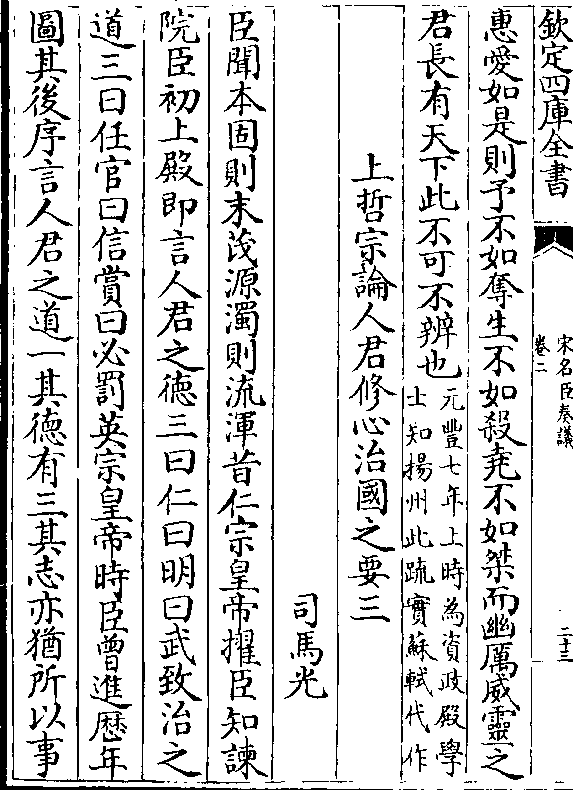 欽定四庫全書
宋名臣奏議
卷二
二十三
惠愛如是則予不如奪生不如殺堯不如桀而幽厲威靈之
君長有天下此不可不辨也
元豐七年上時為資政殿學
士知揚州此疏實蘇軾代作
上哲宗論人君修心治國之要三
司馬光
臣聞本固則末茂源濁則流渾昔仁宗皇帝擢臣知諫
院臣初上殿即言人君之德三曰仁曰明曰武致治之
道三曰任官曰信賞曰必罰英宗皇帝時臣曾進歷年
圖其後序言人君之道一其德有三其志亦猶所以事